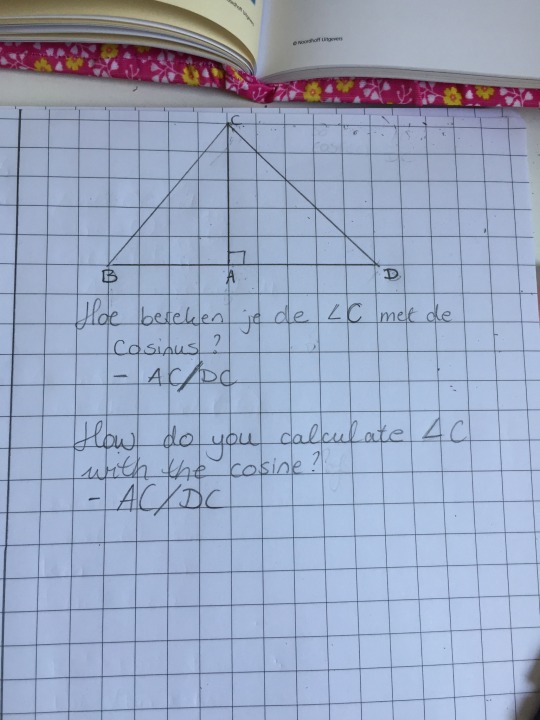 © Noordhoff Uitgevers
C
B
A
D
Hoe bereken je de ∠C met de
cosinus?
- AC/DC
How do you calculate ∠C
with the cosine?
- AC/DC